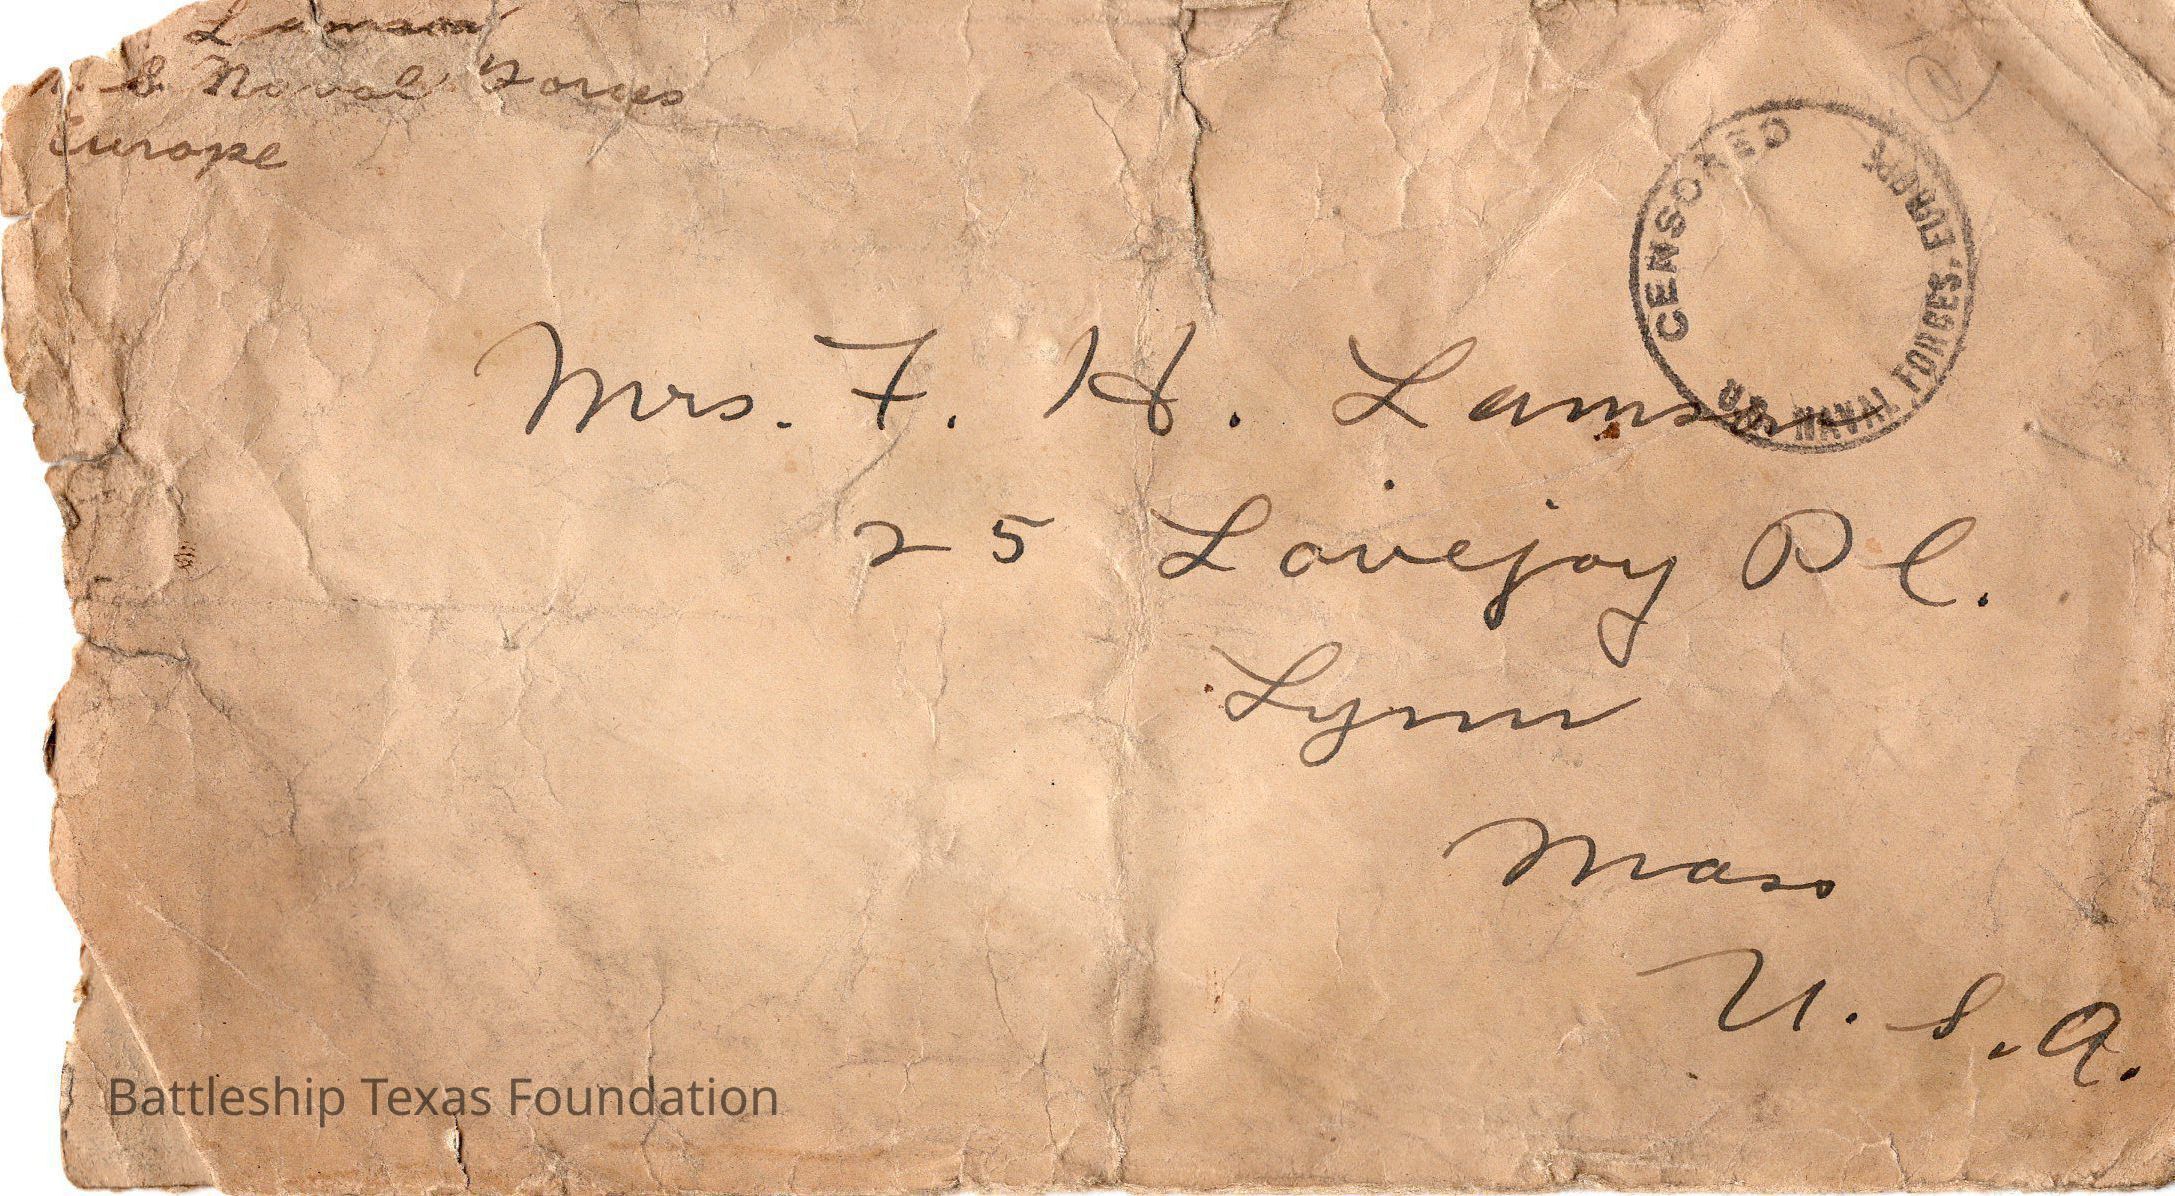 Lamson
U. S. Naval Forces
Europe
CENSORED
U.S. NAVAL FORCES, EUROPE
Mrs. F. H. Lamson
25 Lovejoy Pl.
Lynn
Mass
U. S. A.
Battleship Texas Foundation